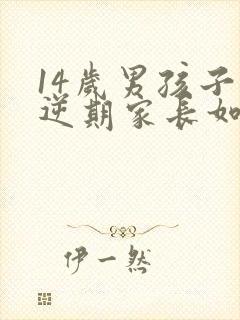 14岁男孩子
逆期家长如
伊一然